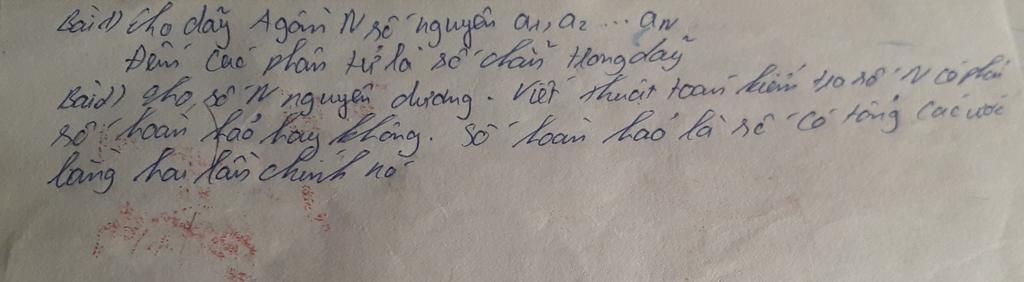 Bài 1) Cho dãy A gồm N số nguyên a1, a2 ... aN
Đếm các phần tử là số chẵn trong dãy
Bài 2) Cho số N nguyên dương. Viết thuật toán kiểm tra số N có phải
số hoàn hảo hay không. Số hoàn hảo là số có tổng các ước
bằng hai lần chính nó